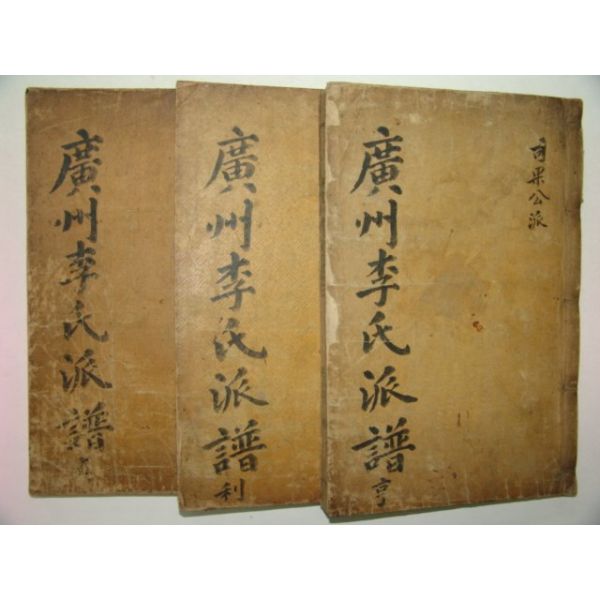 廣州李氏派譜
廣州李氏派譜 利
廣州李氏派譜 亨
司果公派